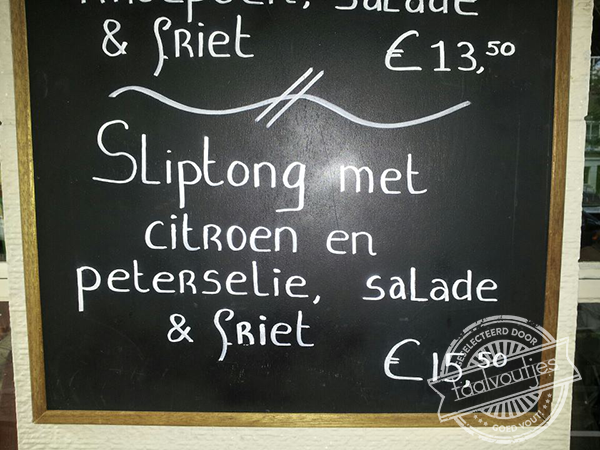 salade
& friet
€ 13,50
Sliptong met
citroen en
peterselie, salade
& friet
€ 15,50
GESELECTEERD DOOR
taalvoutjes
GOED VOUT!